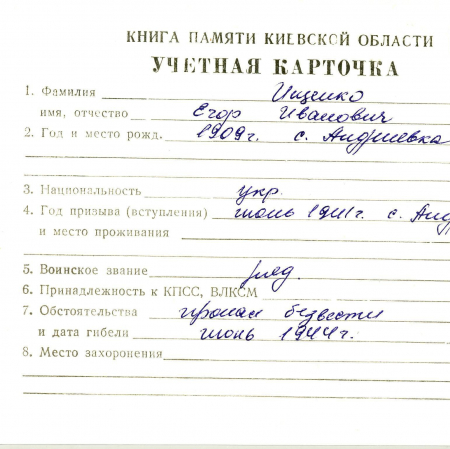 КНИГА ПАМЯТИ КИЕВСКОЙ ОБЛАСТИ
УЧЕТНАЯ КАРТОЧКА
1. Фамилия Ищенко
имя, отчество Егор Иванович
2. Год и место рожд. 1909г. с. Андриевка
3. Национальность укр.
4. Год призыва (вступления) июнь 1941г. с. Анд
и место проживания
5. Воинское звание ряд.
6. Принадлежность к КПСС, ВЛКСМ
7. Обстоятельства пропал безвести
и дата гибели июнь 1944г.
8. Место захоронения